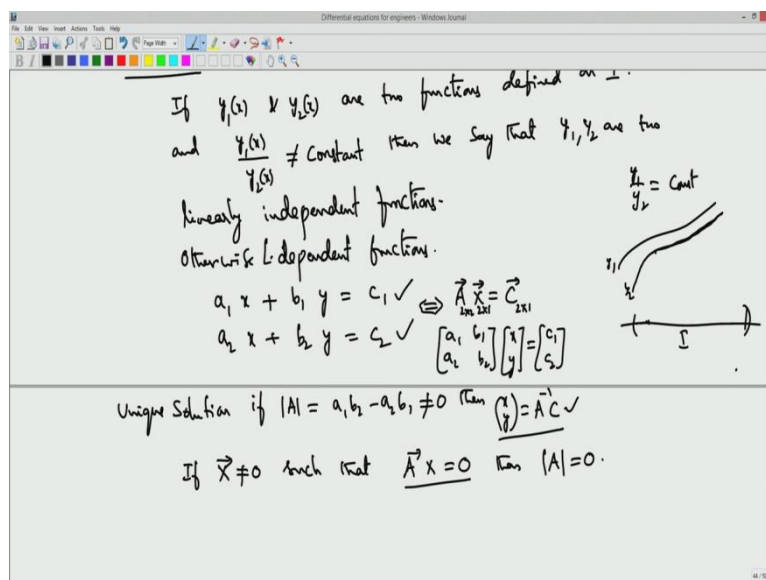 Differential equations for engineers - Windows Journal
File Edit View Insert Actions Tools Help
Page Width
B I
If y₁(x) & y₂(x) are two functions defined on I.
and y₁(x)/y₂(x) ≠ Constant then we say that y₁, y₂ are two
linearly independent functions.
Otherwise L. dependent functions.
y₁/y₂ = Const
y₁
y₂
I
a₁ x + b₁ y = c₁ ✓ ⇔ A⃗ 2x2 X⃗ 2x1 = C⃗ 2x1
a₂ x + b₂ y = c₂ ✓ [a₁ b₁; a₂ b₂] [x; y] = [c₁; c₂]
Unique Solution if |A| = a₁b₂ - a₂b₁ ≠ 0 then (x y) = A⁻¹C ✓
If X⃗ ≠ 0 such that A⃗ x = 0 then |A| = 0.